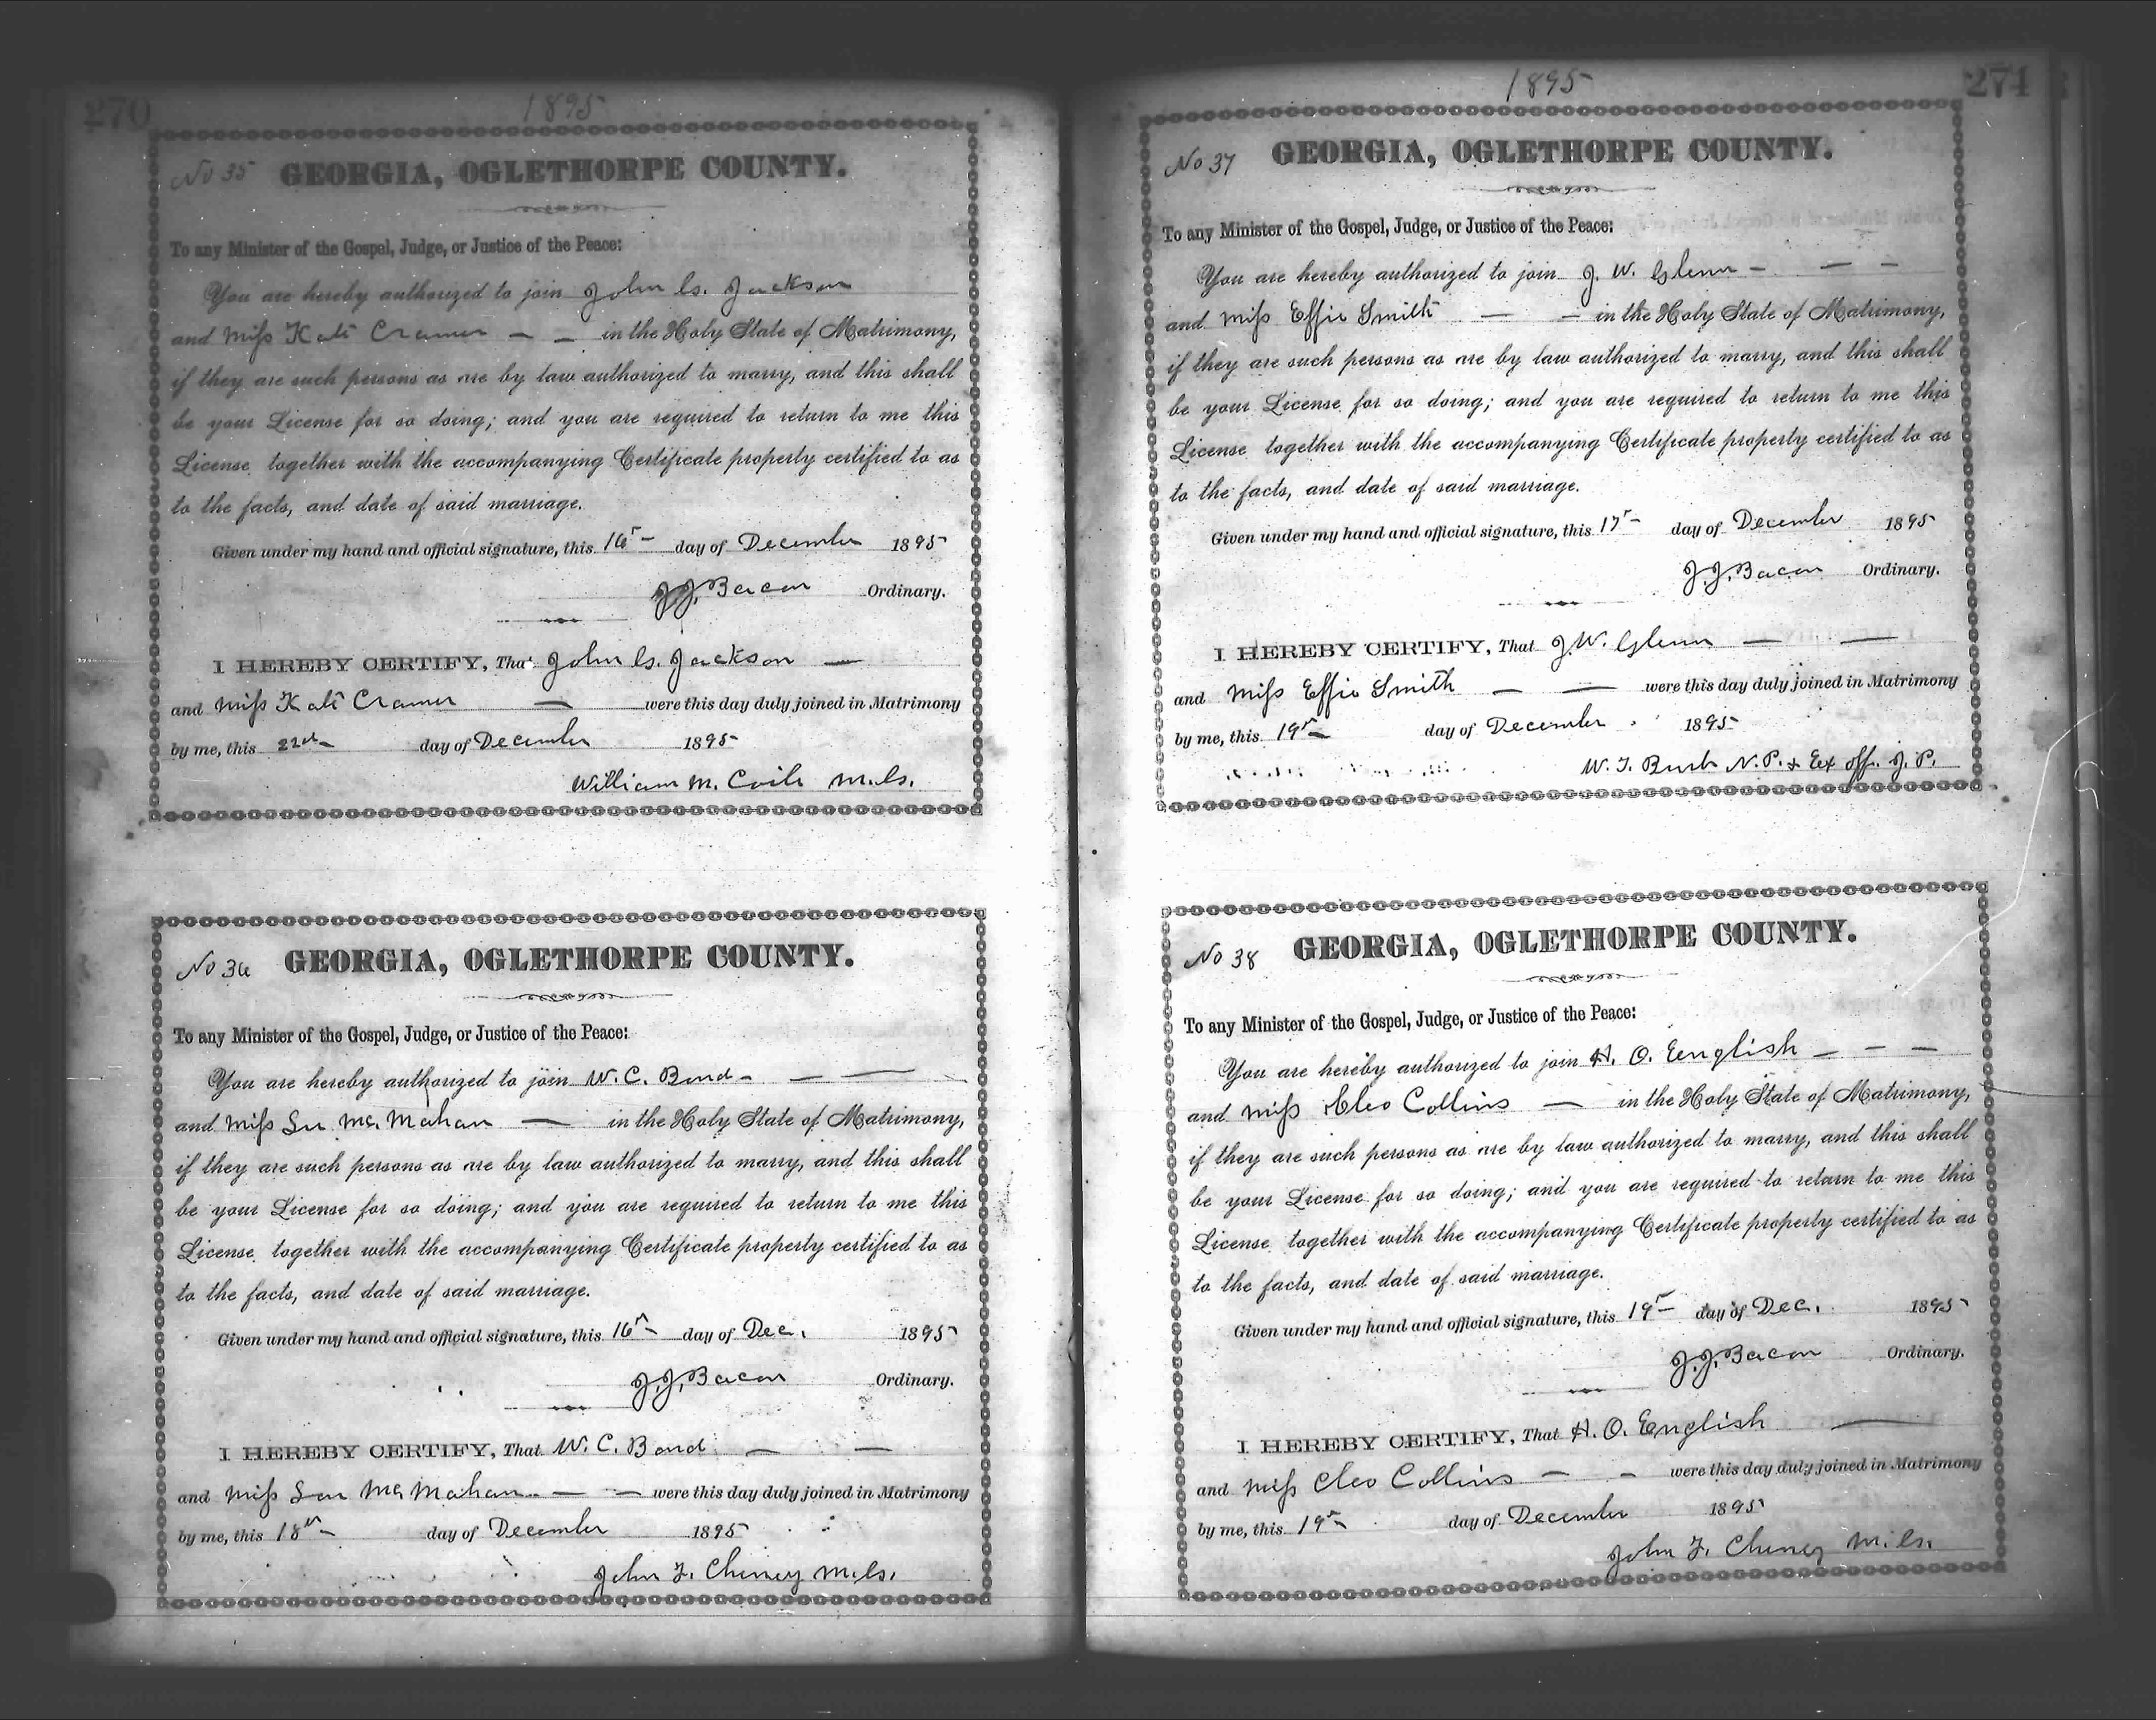 270
1895
No 35 GEORGIA, OGLETHORPE COUNTY.
To any Minister of the Gospel, Judge, or Justice of the Peace:
You are hereby authorized to join John G. Jackson
and Miss Kate Cramer — — in the Holy State of Matrimony,
if they are such persons as are by law authorized to marry, and this shall
be your License for so doing; and you are required to return to me this
License together with the accompanying Certificate property certified to as
to the facts, and date of said marriage.
Given under my hand and official signature, this 16th day of December 1895
J. J. Bacon Ordinary.
I HEREBY CERTIFY, That John G. Jackson —
and Miss Kate Cramer — were this day duly joined in Matrimony
by me, this 22nd day of December 1895
William M. Coile M.G.
No 36 GEORGIA, OGLETHORPE COUNTY.
To any Minister of the Gospel, Judge, or Justice of the Peace:
You are hereby authorized to join W. C. Bond — —
and Miss Lu McMahan — in the Holy State of Matrimony,
if they are such persons as are by law authorized to marry, and this shall
be your License for so doing; and you are required to return to me this
License together with the accompanying Certificate property certified to as
to the facts, and date of said marriage.
Given under my hand and official signature, this 16th day of Dec. 1895
J. J. Bacon Ordinary.
I HEREBY CERTIFY, That W. C. Bond — —
and Miss Lou McMahan — — were this day duly joined in Matrimony
by me, this 18th day of December 1895
John F. Cheney M.G.
1895
271
No 37 GEORGIA, OGLETHORPE COUNTY.
To any Minister of the Gospel, Judge, or Justice of the Peace:
You are hereby authorized to join J. W. Glenn — — —
and Miss Effie Smith — — in the Holy State of Matrimony,
if they are such persons as are by law authorized to marry, and this shall
be your License for so doing; and you are required to return to me this
License together with the accompanying Certificate property certified to as
to the facts, and date of said marriage.
Given under my hand and official signature, this 17th day of December 1895
J. J. Bacon Ordinary.
I HEREBY CERTIFY, That J. W. Glenn — —
and Miss Effie Smith — — were this day duly joined in Matrimony
by me, this 19th day of December 1895
W. T. N.P. & Ex off. J. P.
No 38 GEORGIA, OGLETHORPE COUNTY.
To any Minister of the Gospel, Judge, or Justice of the Peace:
You are hereby authorized to join H. O. English — — —
and Miss Cleo Collins — in the Holy State of Matrimony,
if they are such persons as are by law authorized to marry, and this shall
be your License for so doing; and you are required to return to me this
License together with the accompanying Certificate property certified to as
to the facts, and date of said marriage.
Given under my hand and official signature, this 19th day of Dec. 1895
J. J. Bacon Ordinary.
I HEREBY CERTIFY, That H. O. English —
and Miss Cleo Collins — — were this day duly joined in Matrimony
by me, this 19th day of December 1895
John F. Cheney M.G.